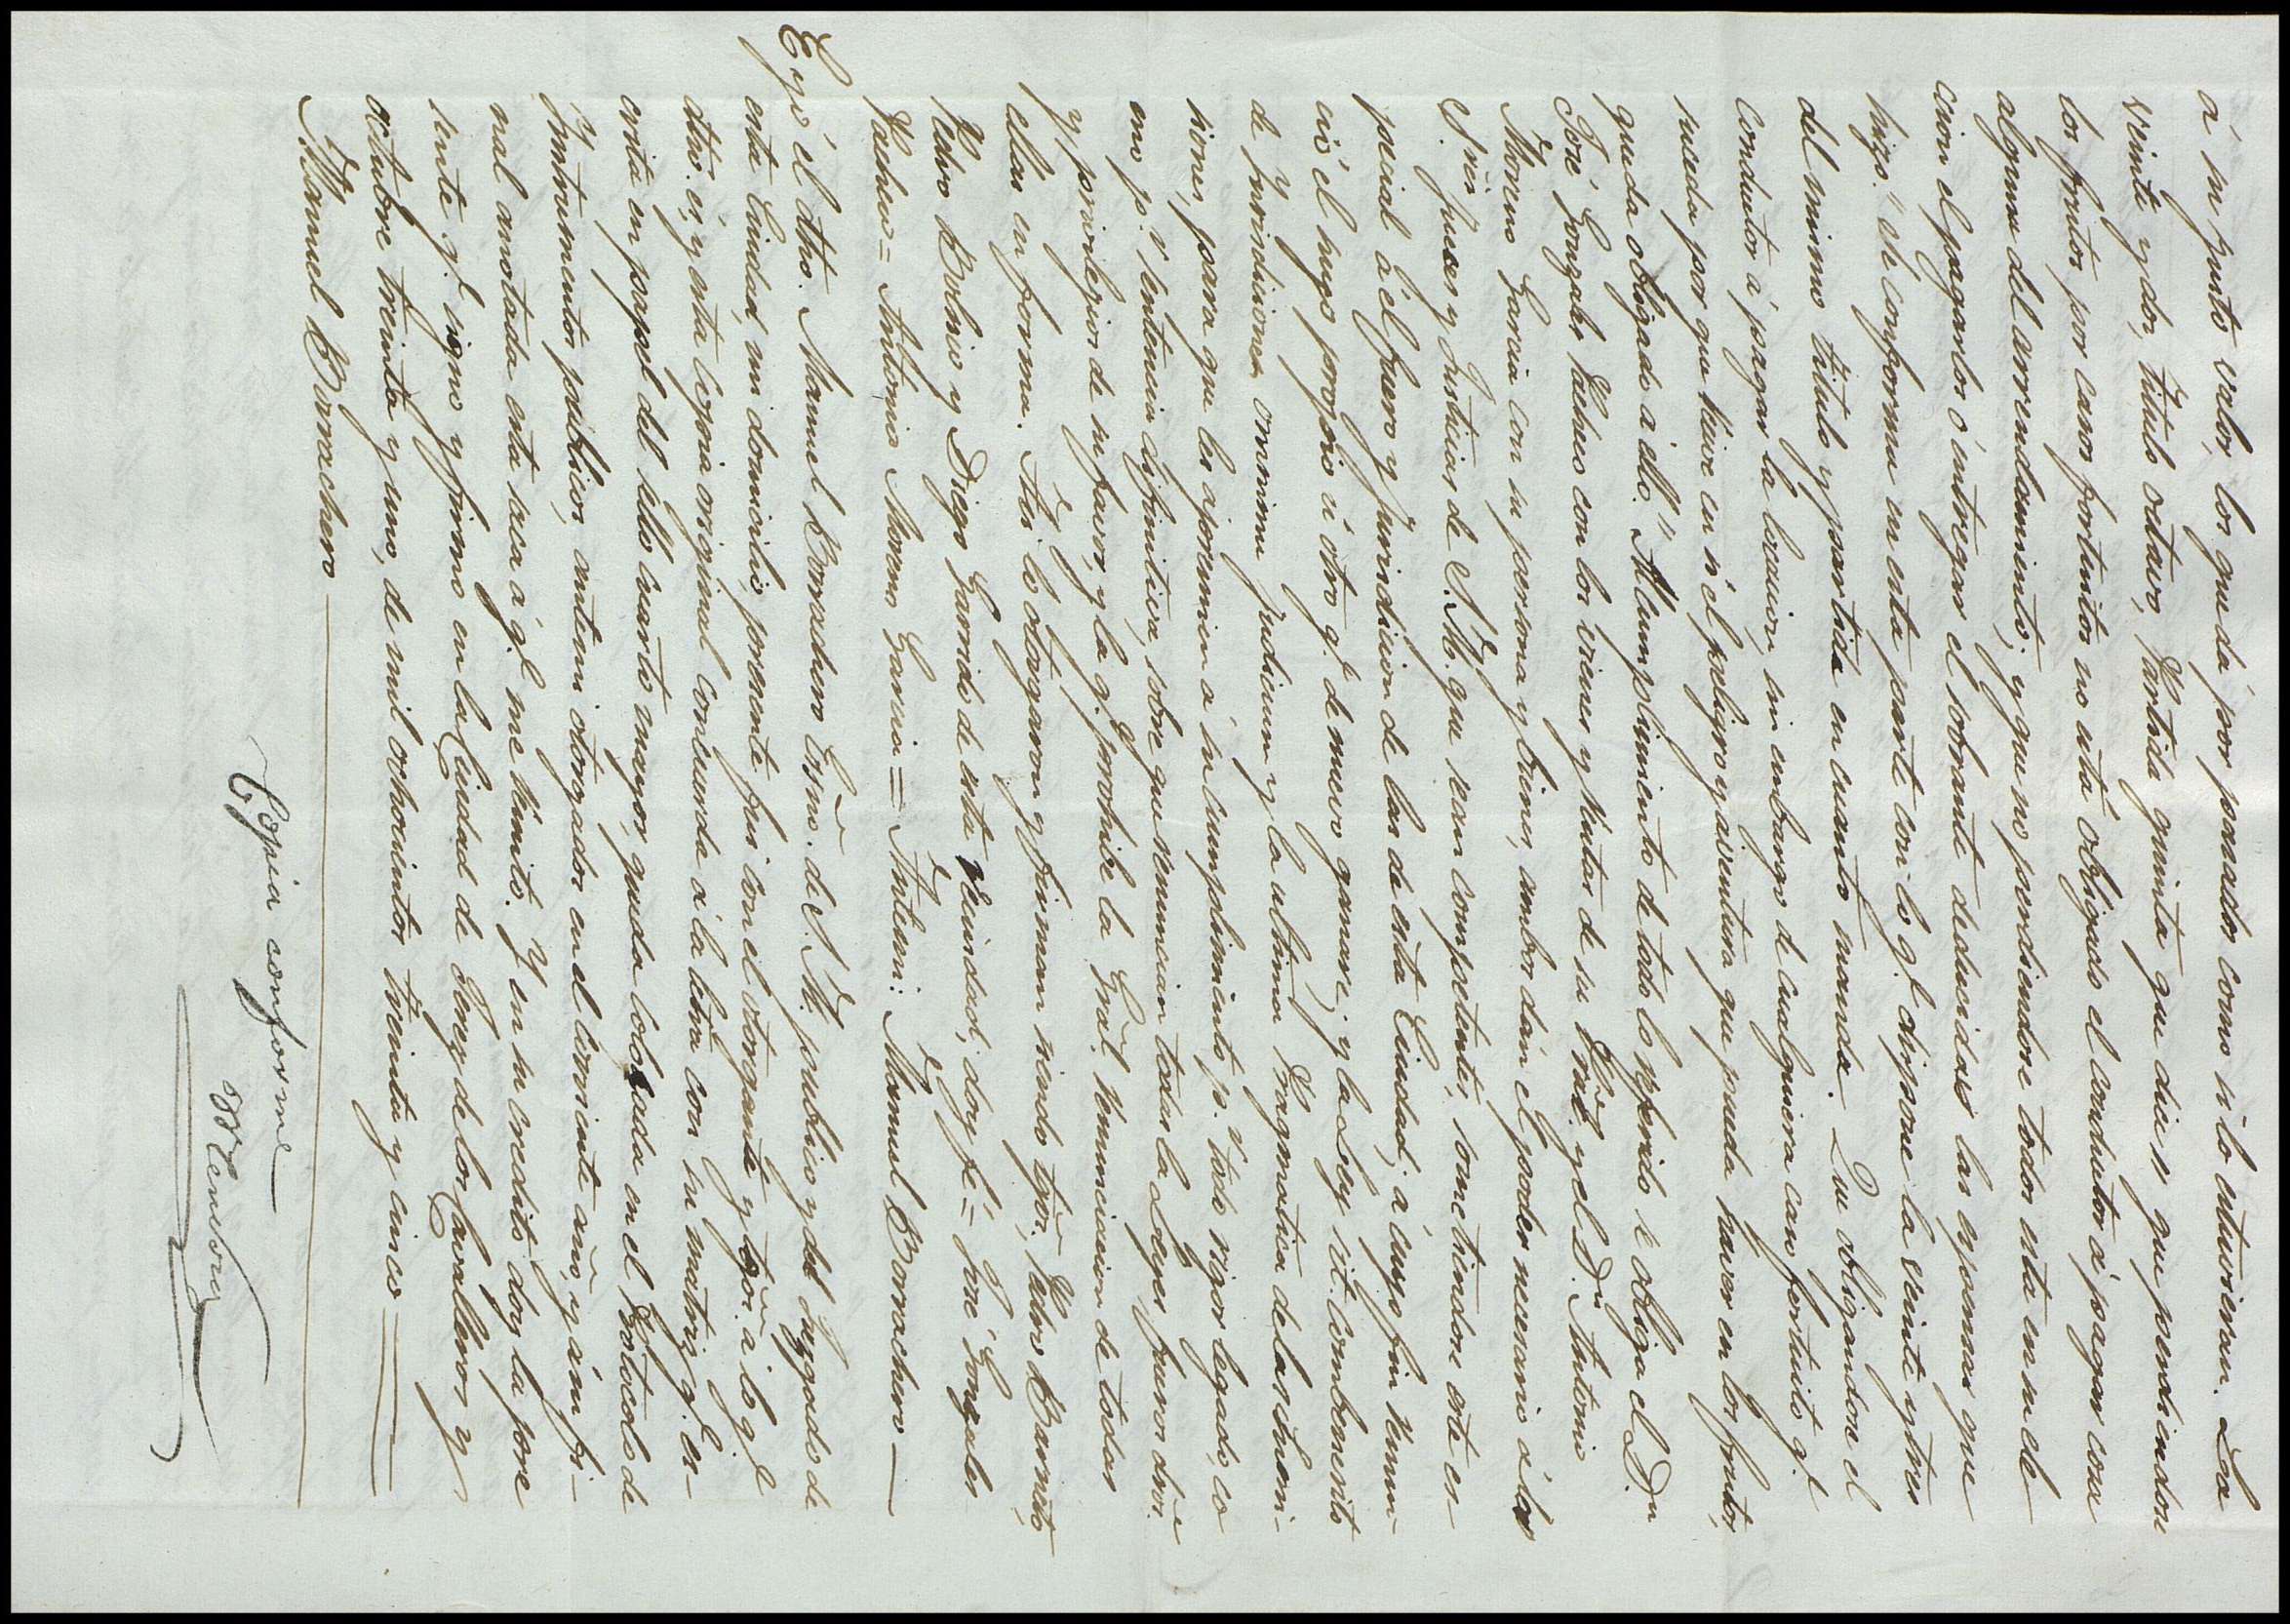 á su justo valor, los que dá por pasados como si lo estuvieran. La
veinte y dos, titulo octavo, Partida quinta que dice, que perdiendose
los frutos por casos fortuitos no está obligado el conductor á pagar cosa
alguna del arrendamiento; y que no perdiendose todos está en su elec
cion el pagarlo ó entregar el sobrante deducidas las espensas que
hizo." Se conforma en esta parte con lo q.e dispone la veinte y tres
del mismo titulo y partida en cuanto manda. Que obligandose el
conductor á pagar la locacion, sin embargo de cualquiera caso fortuito q.e
suceda por que tiene en sí el peligro y aventura que pueda haver en los frutos,
queda obligado á ello." Al cumplimiento de todo lo referido se obliga el D.n
José Gonzales Pacheco con los vienes y rentas de su Pral. y el D.n Antonio
Moreno Garcia con su persona y bienes, ambos dán el poder necesario á los
S.res Jueces y Justicias de S.M. que sean competentes, sometiendose este es-
pecial á el fuero y jurisdiccion de las de esta Ciudad, á cuyo fin renun-
ció el suyo propio ú otro q.e de nuevo ganare, y la Ley sit combenerit
de jurisdictione omnium judicum y la ultima Pragmatica de las sumi-
siones, para que les apremien á su cumplimiento p.r todo rigor legado, co
mo p.r sentencia difinitiva, sobre que renuncian todas las Leyes fueros dros.
y privilegios de su favor, y la q.e prohibe la Gral. renunciacion de todas
ellas en forma. Asi lo otorgaron y firman siendo tgos. Pedro Barneto,
Pedro Bulnio y Diego Garrido de esta vecindad, doy fé = José Gonzales
Pacheco = Antonio Moreno Garcia = Antemi: Manuel Borrachero —
E yo el dho. Manuel Borrachero Essno. de S.M. publico y del Juzgado de
esta Ciudad, mi domicilio, presente fui con el otorgante y tgos. á lo q.e
dho. es, y esta Copia original concuerda á la letra con su matriz, q.e es-
crita en papel del sello cuarto mayor, queda colocada en el Protocolo de
Instrumentos publicos, antemi otorgados en el corriente año, y á su fi-
nal anotada esta saca á q.e me remito. Y en su credito doy la pre
sente q.e signo y firmo en la Ciudad de Jerez de los Cavalleros y
octubre treinta y uno, de mil ochocientos treinta y cinco =
Manuel Borrachero —
Copia conforme